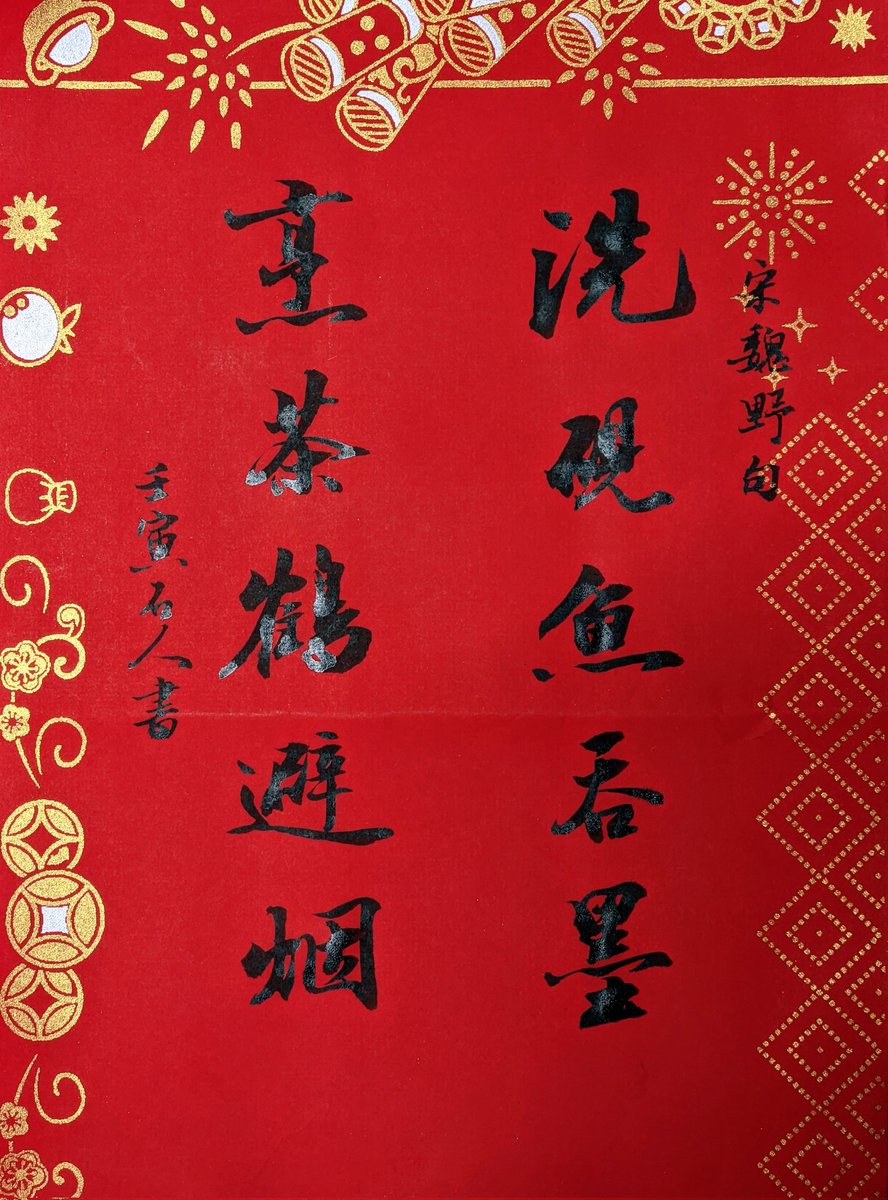 宋魏野句
洗砚鱼吞墨
烹茶鹤避烟
壬寅石人書